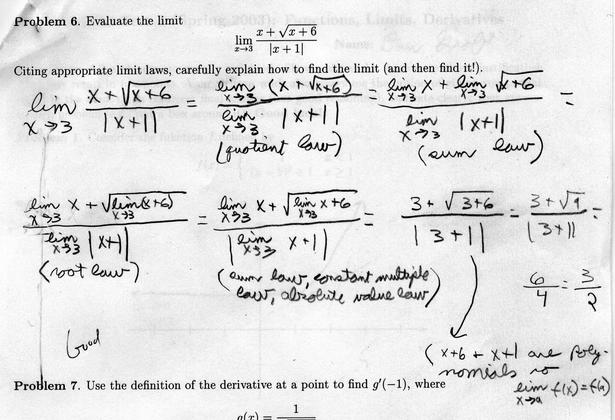 Problem 6. Evaluate the limit
lim x→3 (x + √(x + 6)) / |x + 1|
Citing appropriate limit laws, carefully explain how to find the limit (and then find it!).
lim x→3 (x + √(x+6)) / |x+1| = lim x→3 (x + √(x+6)) / lim x→3 |x+1| = (lim x→3 x + lim x→3 √(x+6)) / lim x→3 |x+1| =
(quotient law) (sum law)
(lim x→3 x + √(lim x→3 (x+6))) / lim x→3 |x+1| = (lim x→3 x + √(lim x→3 x+6)) / |lim x→3 x+1| = (3 + √(3+6)) / |3+1| = (3 + √9) / |3+1| =
(root law) (sum law, constant multiple
law, absolute value law)
6/4 = 3/2
Good
(x+6 + x+1 are poly-
nomials so
lim x→a f(x) = f(a)
Problem 7. Use the definition of the derivative at a point to find g′(−1), where
1